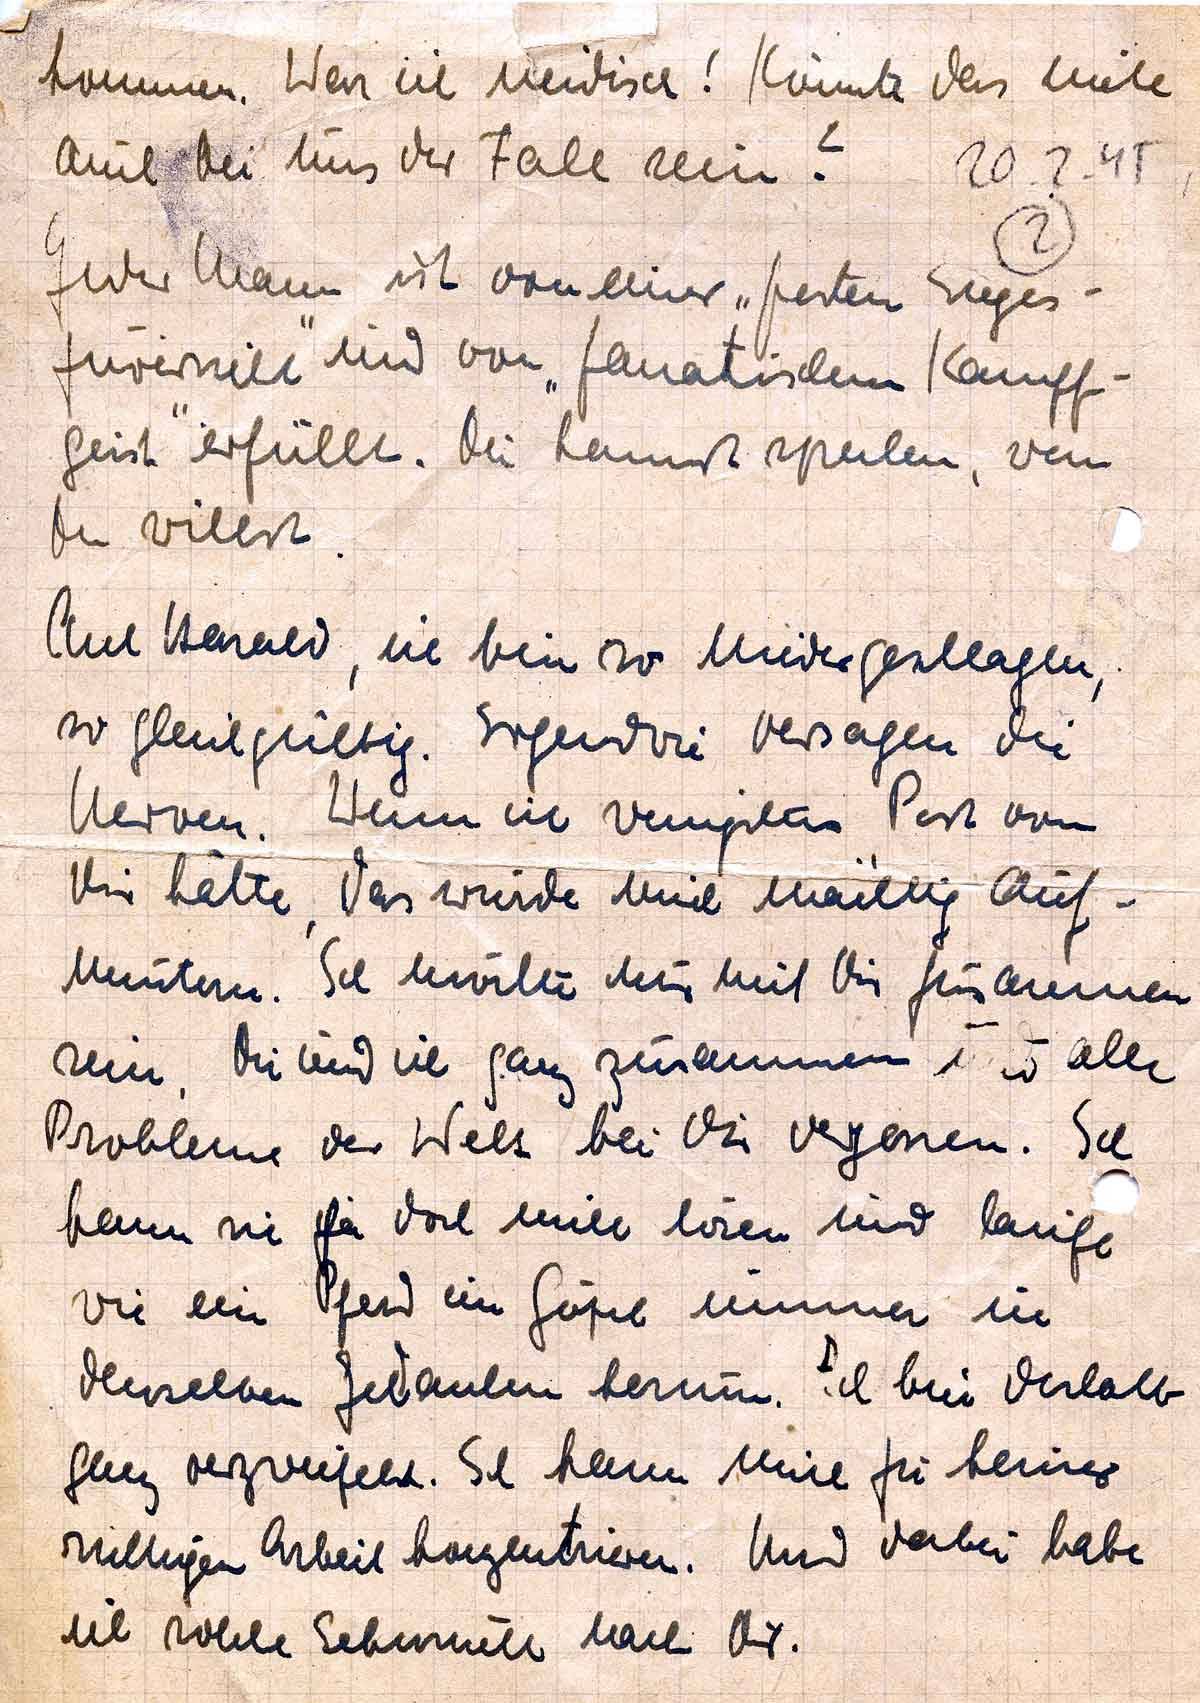 kommen. War ich neidisch! Könnte das nicht
auch bei uns der Fall sein?
20.2.45
2
Jeder Mann ist von einer „festen Sieges-
zuversicht" und von „fanatischem Kampf-
geist" erfüllt. Du kannst spucken, wenn
Du willst.
Ach Harald, ich bin so niedergeschlagen,
so gleichgültig. Irgendwie versagen die
Nerven. Wenn ich wenigstens Post von
Dir hätte, das würde mich mächtig auf-
muntern. Ich möchte nur mit Dir zusammen
sein, Du und ich ganz zusammen und alle
Probleme der Welt bei Dir vergessen. Ich
kann sie ja doch nicht lösen und laufe
wie ein Pferd im Göpel immer in
denselben Gedanken herum. Ich bin deshalb
ganz verzweifelt. Ich kann mich zu keiner
richtigen Arbeit konzentrieren. Und dabei habe
ich solche Sehnsucht nach Dir.